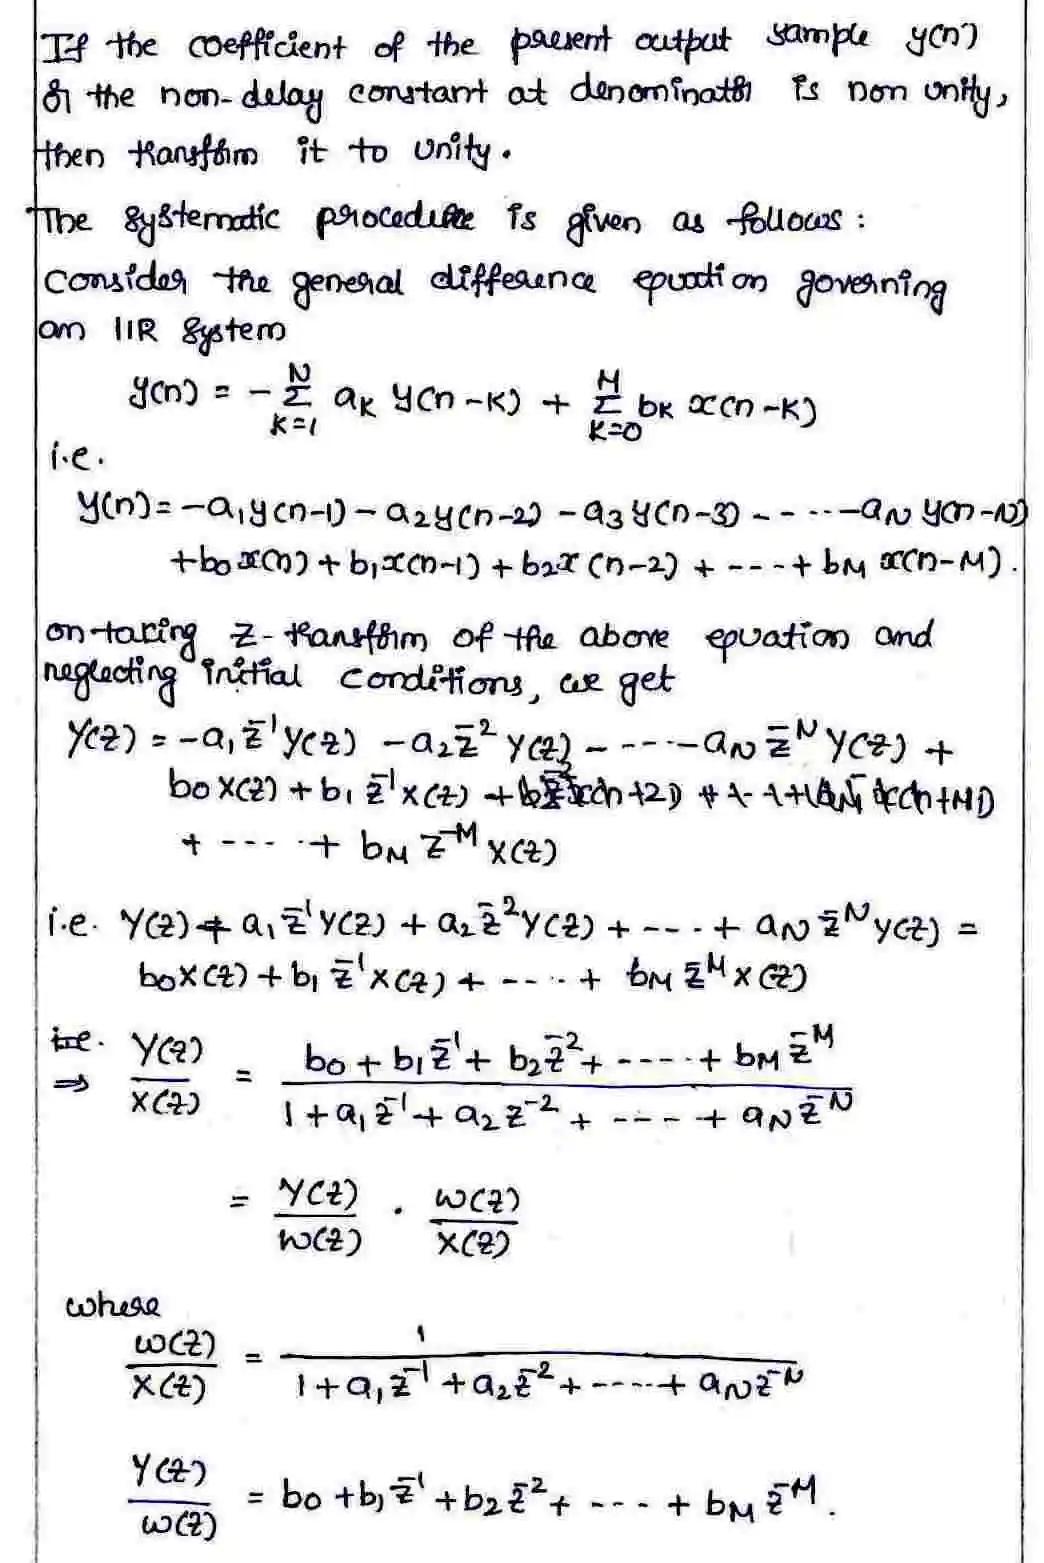 If the coefficient of the present output sample y(n)
or the non-delay constant at denominator is non unity,
then transform it to unity.
The systematic procedure is given as follows:
Consider the general difference equation governing
an IIR system
y(n) = - Σ_{k=1}^{N} a_k y(n-k) + Σ_{k=0}^{M} b_k x(n-k)
i.e.
y(n) = -a₁y(n-1) - a₂y(n-2) - a₃y(n-3) - - ... - a_N y(n-N)
+ b₀x(n) + b₁x(n-1) + b₂x(n-2) + - - - + b_M x(n-M).
on taking z-transform of the above equation and
neglecting initial conditions, we get
Y(z) = -a₁z⁻¹Y(z) - a₂z⁻²Y(z) - - - - - a_N z^{-N} Y(z) +
b₀X(z) + b₁z⁻¹X(z)
+ - - - . + b_M z^{-M} X(z)
i.e. Y(z) + a₁z⁻¹Y(z) + a₂z⁻²Y(z) + - - . + a_N z^{-N} Y(z) =
b₀X(z) + b₁z⁻¹X(z) + - - . . + b_M z^{-M} X(z)
⇒ Y(z)/X(z) = (b₀ + b₁z⁻¹ + b₂z⁻² + - - - - + b_M z^{-M}) / (1 + a₁z⁻¹ + a₂z⁻² + - - - - + a_N z^{-N})
= Y(z)/W(z) . W(z)/X(z)
where
W(z)/X(z) = 1 / (1 + a₁z⁻¹ + a₂z⁻² + - - - - + a_N z^{-N})
Y(z)/W(z) = b₀ + b₁z⁻¹ + b₂z⁻² + - - - + b_M z^{-M}.